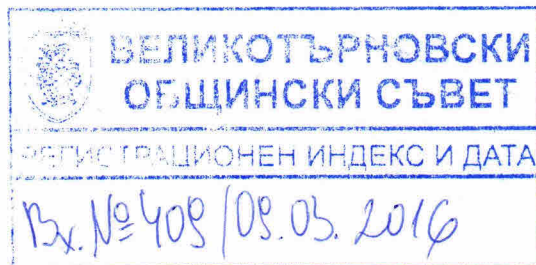 ВЕЛИКОТЪРНОВСКИ
ОБЩИНСКИ СЪВЕТ
РЕГИСТРАЦИОНЕН ИНДЕКС И ДАТА
Вх. № 409 / 09.03. 2016